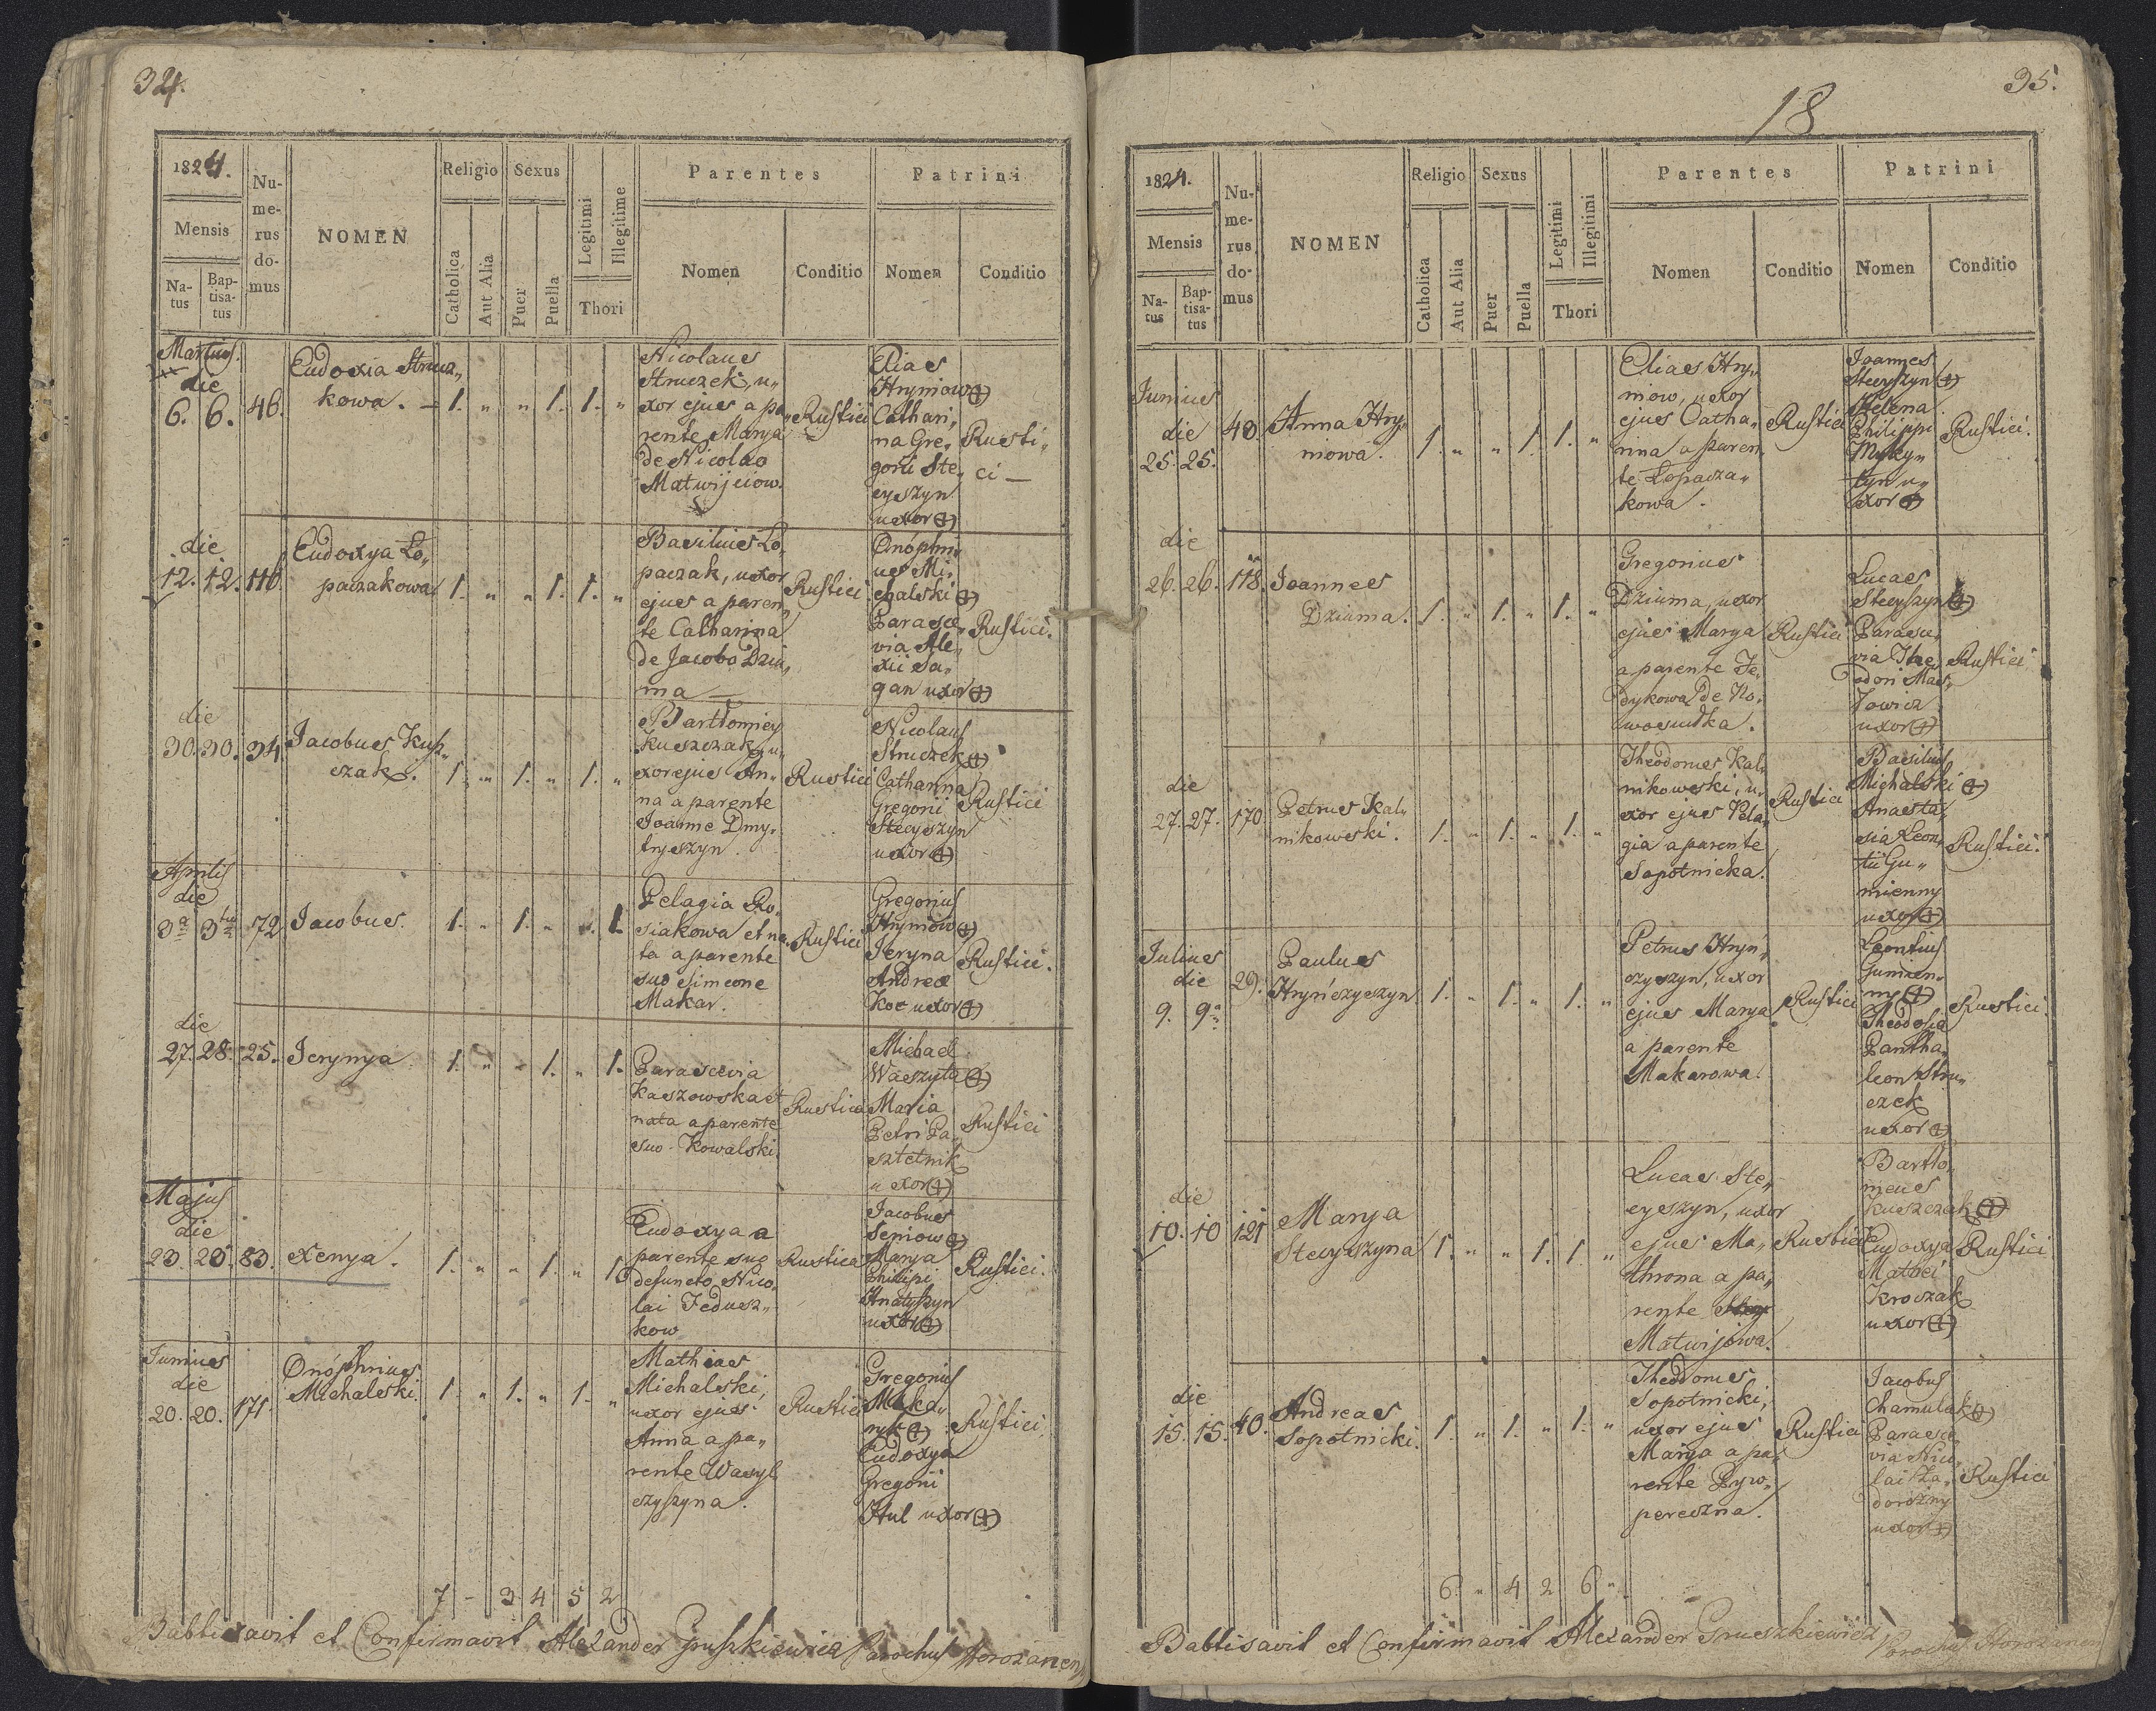 34.
1824.
Mensis
Na-
tus
Bap-
tisa-
tus
Nu-
me-
rus
do-
mus
NOMEN
Religio
Catholica
Aut Alia
Sexus
Puer
Puella
Legitimi
Illegitime
Thori
Parentes
Nomen
Conditio
Patrini
Nomen
Conditio
Martius.
die
6. 6. 46.
Eudoxia Strucz„
kowa. –
1. „ „ 1. 1. „
Nicolaus
Struczek, u„
xor ejus a pa„
rente Marya
de Nicolao
Matwijciow.
Rustici
Elias
Hryniow (+)
Cathari„
na Gre„
gorii Ste„
cyszyn
uxor (+)
Rusti„
ci –
die
12. 12. 116.
Eudoxya Ło„
paczakowa
1. „ „ 1. 1. „
Basilius Ło„
paczak, uxor
ejus a paren„
te Catharina
de Jacobo Dziu„
ma –
Rustici
Onóphri„
us Mi„
chalski (+)
Parasce„
via Ale„
xii Sa„
gan uxor (+)
Rustici.
die
30. 30. 34.
Jacobus Kusz„
czak.
1. „ 1. „ 1. „
Bartłomiey
Kuszczak, u„
xor ejus An„
na a parente
Joanne Dmy„
tryszyn.
Rustici
Nicolaus
Struczek (+)
Catharina
Gregorii
Stecyszyn
uxor (+)
Rustici
Aprilis
die
3a 3tia 172
Jacobus.
1. „ 1. „ „. 1.
Pelagia Ko„
siakowa et na„
ta a parente
suo Simeone
Makar.
Rustici
Gregorius
Hryniow (+)
Jeryna
Andreæ
Koc uxor (+)
Rustici.
die
27. 28. 25.
Jerynya
1. „ „ 1. „ 1.
Parascevia
Kaszowska et
nata a parente
suo Kowalski.
Rustica
Michael
Waszyta (+)
Maria
Petri Pa„
sztetnik
uxor (+)
Rustici
Majus
die
23. 25. 83.
Xenya.
1. „ „ 1. „ 1.
Eudoxya a
parente suo
defuncto Nico„
lai Fedusz„
kow
Rustica
Jacobus
Seniow (+)
Marya
Philipi
Hnatyszyn
uxor (+)
Rustici.
Junius
die
20. 20. 171.
Onóphrius
Michalski.
1. „ 1. „ 1. „
Mathias
Michalski,
uxor ejus
Anna a pa„
rente Wasyl„
czyszyna.
Rustici
Gregorius
Maka„
ryk (+)
Eudoxya
Gregorii
Hul uxor (+)
Rustici.
7 - 3 4 5 2
Babtisavit et Confirmavit Alexander Gruszkiewicz Parochus Horozanen
35.
18
1824.
Mensis
Na-
tus
Bap-
tisa-
tus
Nu-
me-
rus
do-
mus
NOMEN
Religio
Catholica
Aut Alia
Sexus
Puer
Puella
Legitimi
Illegitimi
Thori
Parentes
Nomen
Conditio
Patrini
Nomen
Conditio
Junius
die
25. 25. 48
Anna Hry„
niowa.
1. „ „ 1. 1. „
Elias Hry„
niow, uxor
ejus Catha„
rina a paren„
te Łopacza„
kowa.
Rustici
Joannes
Stecyszyn (+)
Helena
Philippi
Myky„
tyn u„
xor (+)
Rustici.
die
26. 26. 118.
Joannes
Dziuma.
1. „ 1. „ 1. „
Gregorius
Dziuma, uxor
ejus Marya
a parente Fe„
dykowa de No„
wosiułka.
Rustici
Lucas
Stecyszyn (+)
Parasce„
via The„
odori Mas„
Jowicz
uxor (+)
Rustici
die
27. 27. 170
Petrus Kal„
nikowski.
1. „ 1. „ 1. „
Theodorus Kal„
nikowski, u„
xor ejus Pela„
gia a parente
Sopotnicka.
Rustici
Basilius
Michalski (+)
Anasta„
sia Leon„
tii Gu„
mienny
uxor (+)
Rustici.
Julius
die
9. 9. 29.
Paulus
Hryńczyszyn.
1. „ 1. „ 1. „
Petrus Hryń„
czyszyn, uxor
ejus Marya
a parente
Makarowa.
Rustici
Leontius
Gumien„
ny (+)
Theodosia
Pantha„
leon Stru„
czek
uxor (+)
Rustici.
die
10. 10 121
Marya
Stecyszyna
1. „ „ 1. 1. „
Lucas Ste„
cyszyn, uxor
ejus Ma„
throna a pa„
rente
Matwijowa.
Rustici
Bartło„
meus
Kuszczak (+)
Eudoxya
Matbei
Kroczak
uxor (+)
Rustici
die
15. 15. 40.
Andreas
Sopotnicki.
1. „ 1. „ 1. „
Theodorus
Sopotnicki,
uxor ejus
Marya a pa„
rente Pyw„
pereszna.
Rustici
Jacobus
Chamulak (+)
Parasce„
via Nico„
lai Za„
dorozny
uxor (+)
Rustici
6. „ 4 2 6 „
Babtisavit et Confirmavit Alexander Gruszkiewicz Parochus Horozanen